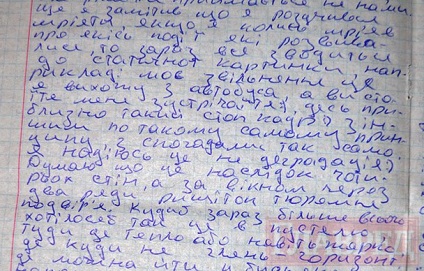 що я розучився
мріяти якщо я колись мріяв
про якісь події які розвива-
лися то зараз все зводиться
до статичної картинки нап-
риклад: мов звільнення це
я виходжу з автобуса а ви сто-
їте мене зустрічаєте, десь при-
близно такий стоп кадр? з ін-
шими по такому самому прин-
ципу з спогадами так само
надіюсь це не деградація?
Думаю що це наслідок чоти-
рьох стін, а за вікном через
два ряди решіток тюремне
подвір'я. Кудиб зараз більше всього
хотілосеб так це в пустелю
туди де тепло або навіть жарко
де куди не глянь горизонт
можна йти и